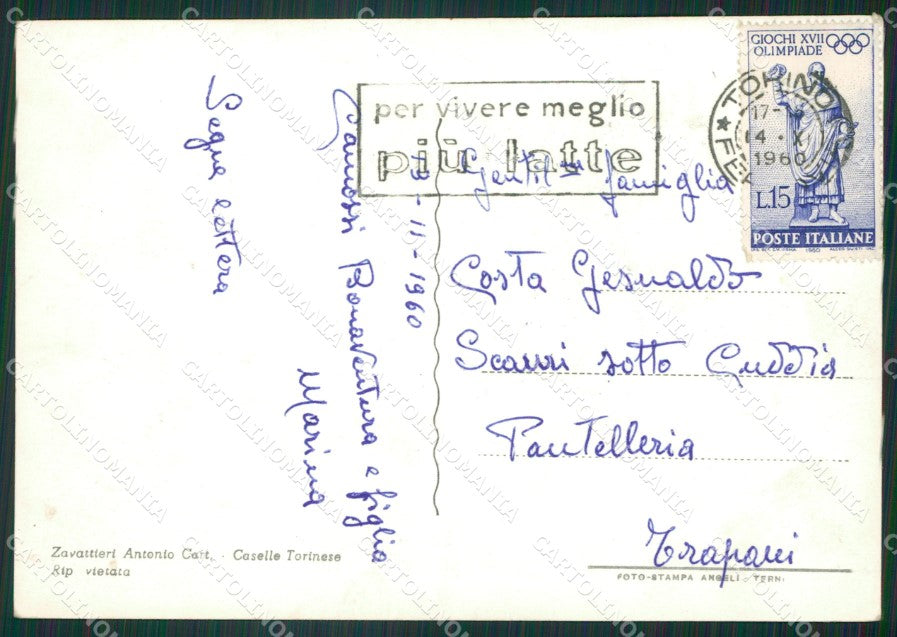 GIOCHI XVII
OLIMPIADE
L.15
POSTE ITALIANE
1960
TORINO
17-
1960
per vivere meglio
più latte
Gentil famiglia
Costa Gesualdo
Scauri sotto Cuddia
Pantelleria
Trapani
-11-1960
Bonaventura e figlia
Marina
Segue lettera
Zavattieri Antonio Cart. - Caselle Torinese
Rip vietata
FOTO-STAMPA ANGELI - TERNI
CARTOLINOMANIA